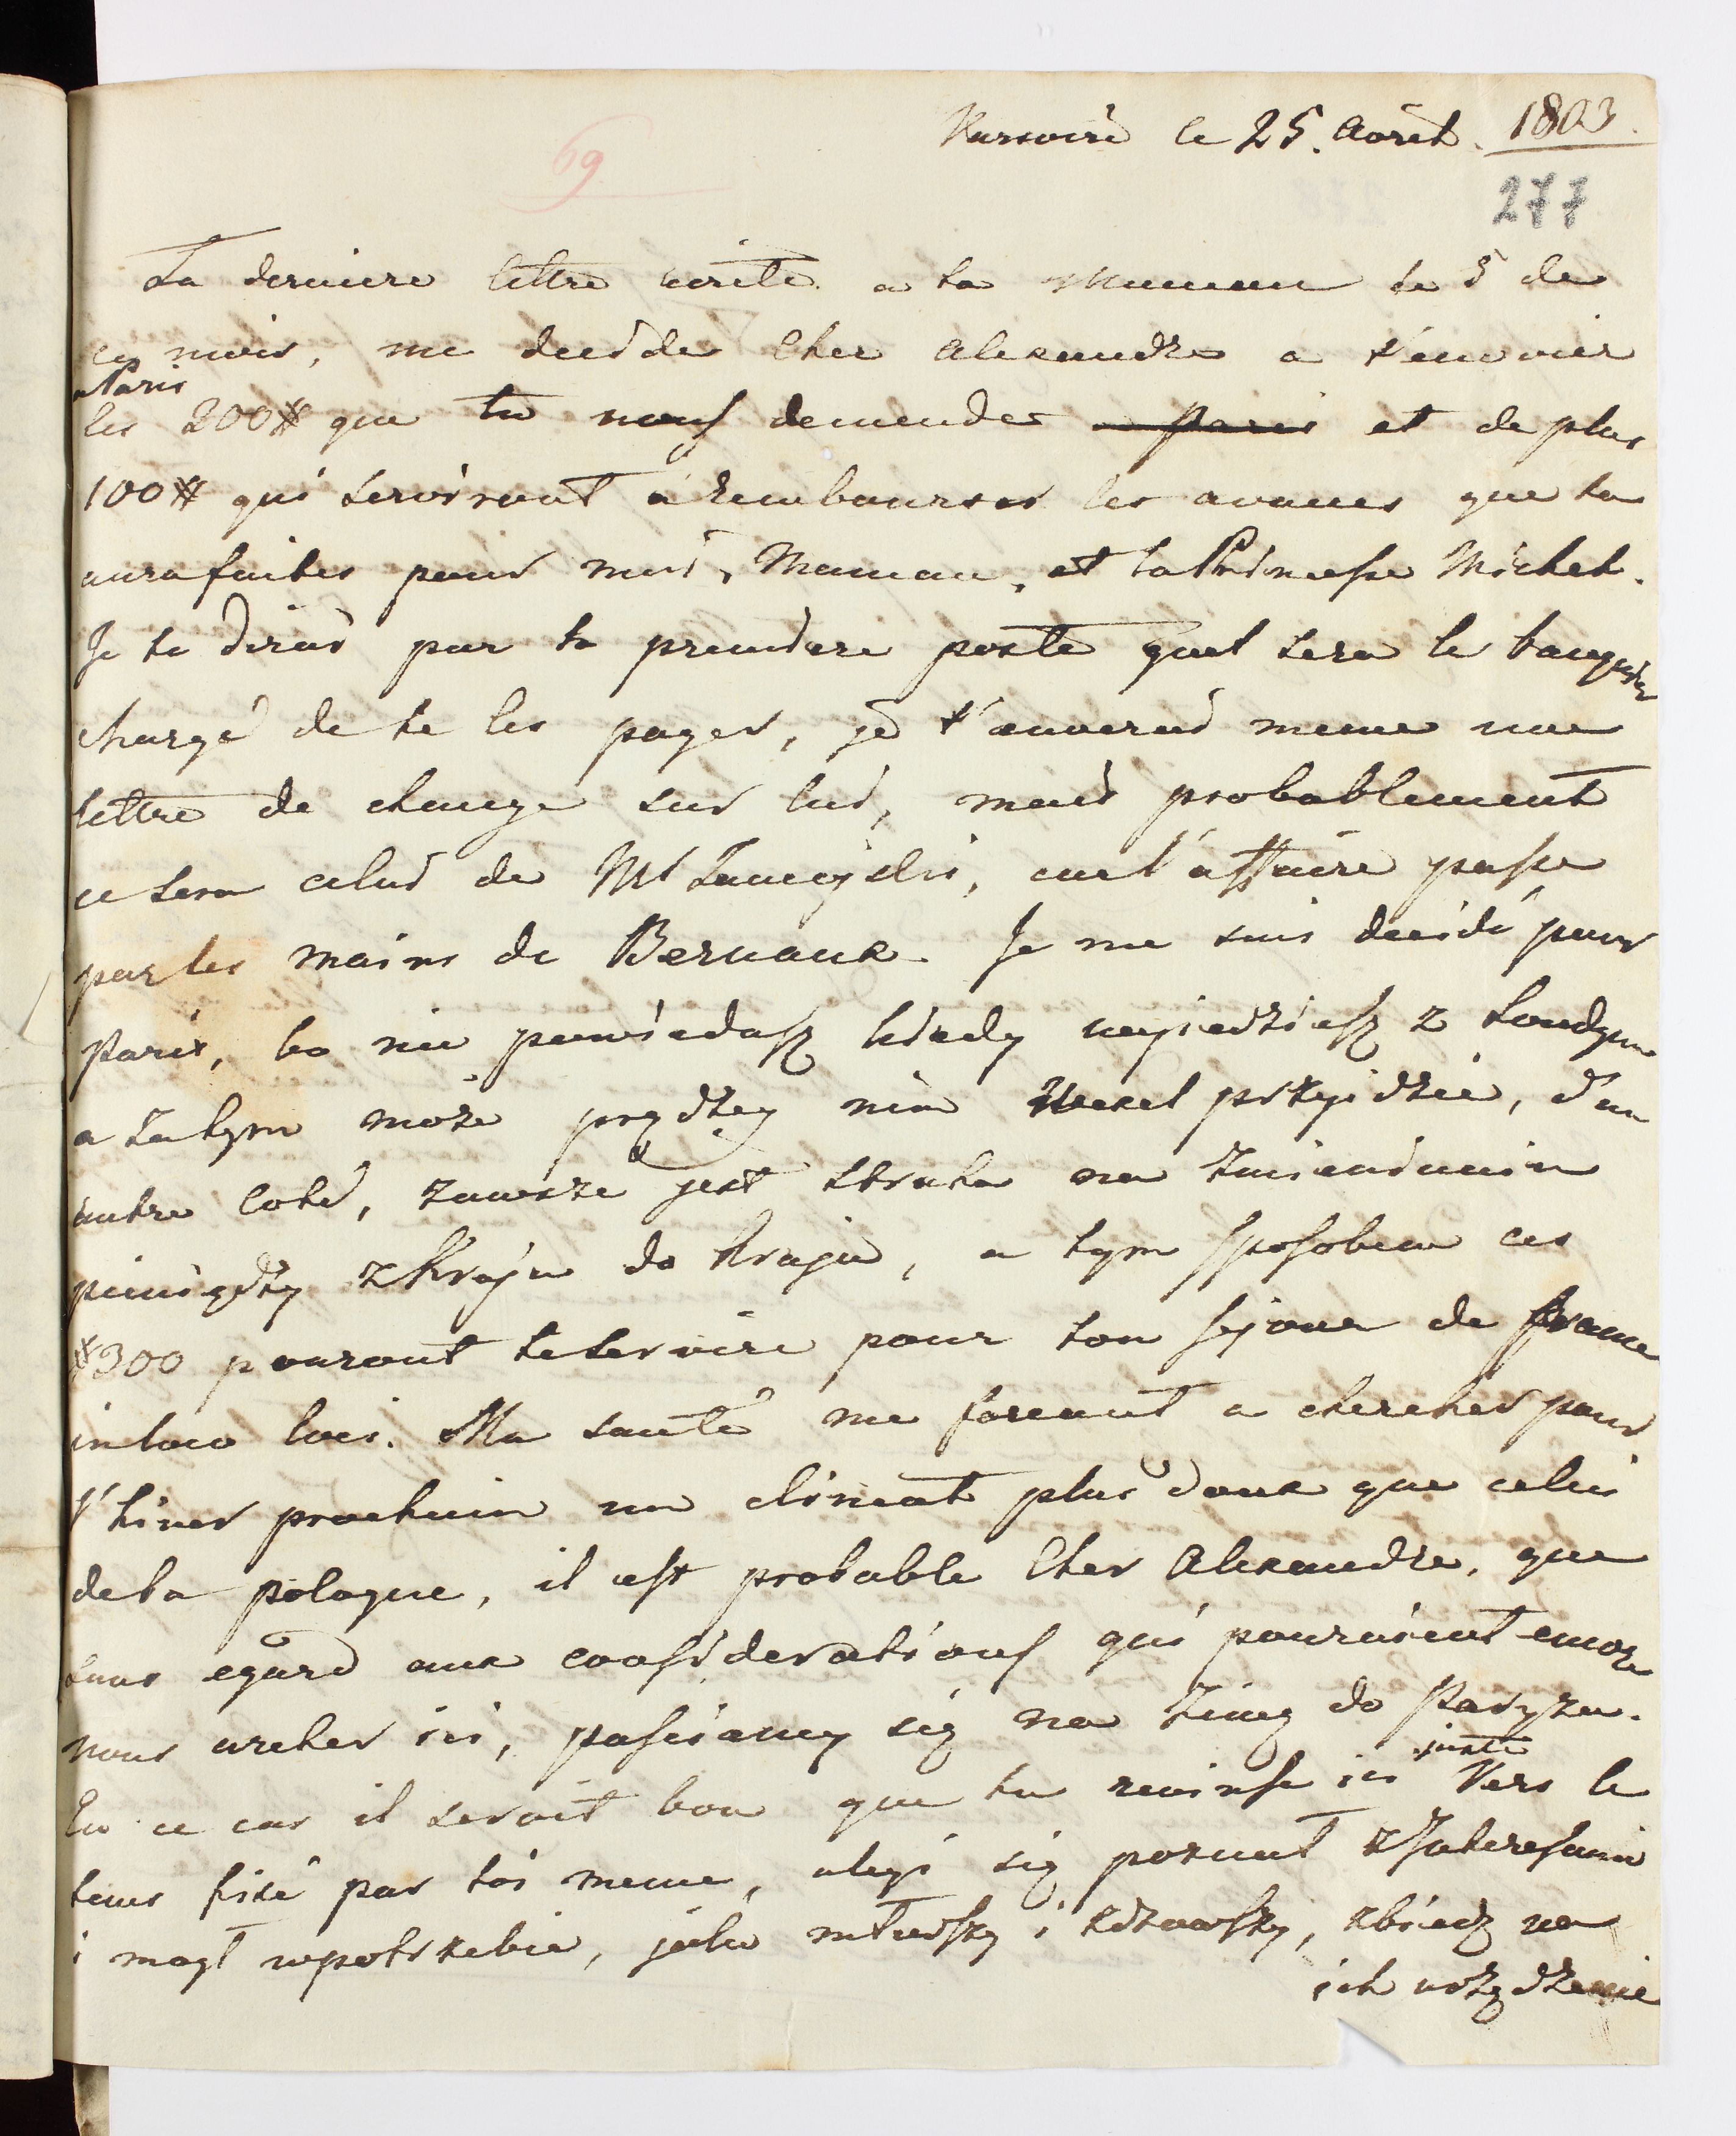 Varsovie le 25. Août. 1803.
69
277
Ta derniere lettre ecrite a ta Maman le 5 de
ce mois, me decide Cher Alexandre a t'envoier
a Paris
les 200# que tu nous demendes a Paris et de plus
100# qui serviront a rembourser les avances que tu
aura faites pour moi, Maman, et la Princesse Michel.
Je te dirai par la premiere poste quel sera le banquier
chargé de te les payer, je t'enverai meme une
lettre de change sur lui, mais probablement
ce sera celui de Mr, car l'affaire passe
par les mains de Bernaux. Je me suis decidé pour
Paris, bo nie powiedasz kiedy wyiedziesz z Londynu
a zatym może prędzey nim Wexel przyidzie, d'un
autre coté, zawsze jest strata na zmienianiu
pieniędzy z Kraju do Kraju, a tym sposobem ces
#300 pouront te servire pour ton sejour de france
in loco loci. Ma santé me forcant a chercher pour
l'hiver prochain un climat plus doux que celui
de la pologne, il est probable Cher Alexandre, que
sans egard aux considerations qui pouraient encore
nous areter ici, pusciemy się na zimę do Paryża.
juste
En ce cas il seroit bon que tu revinse ici Vers le
tems fixé par toi meme, abyś się poznał z Interesami
i mogł w potrzebie, jako młodszy i zdrowszy, zbiedz na
ich urządzenie